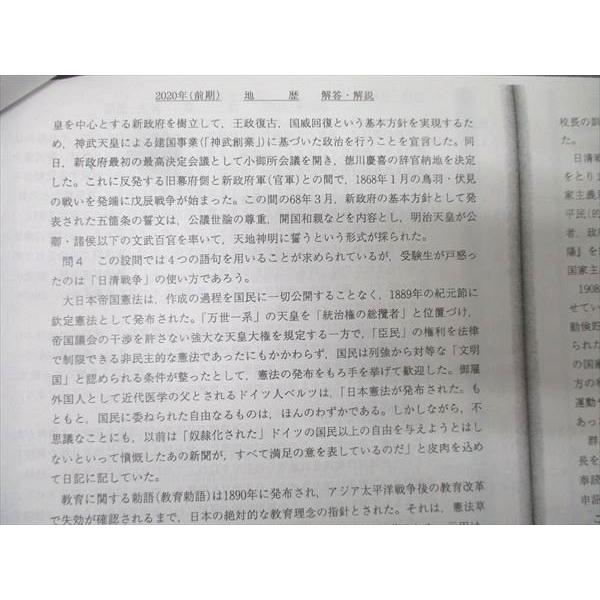 2020年(前期) 地 歴 解答・解説
皇を中心とする新政府を樹立して，王政復古，国威回復という基本方針を実現するた
め，神武天皇による建国事業(「神武創業」)に基づいた政治を行うことを宣言した。同
日，新政府最初の最高決定会議として小御所会議を開き，徳川慶喜の辞官納地を決定
した。これに反発する旧幕府側と新政府軍(官軍)との間で，1868年1月の鳥羽・伏見
の戦いを発端に戊辰戦争が始まった。この間の68年3月，新政府の基本方針として発
表された五箇条の誓文は，公議世論の尊重，開国和親などを内容とし，明治天皇が公
卿・諸侯以下の文武百官を率いて，天地神明に誓うという形式が採られた。
問4 この設問では4つの語句を用いることが求められているが，受験生が戸惑っ
たのは「日清戦争」の使い方であろう。
大日本帝国憲法は，作成の過程を国民に一切公開することなく，1889年の紀元節に
欽定憲法として発布された。「万世一系」の天皇を「統治権の総攬者」と位置づけ，
帝国議会の干渉を許さない強大な天皇大権を規定する一方で，「臣民」の権利を法律
で制限できる非民主的な憲法であったにもかかわらず，国民は列強から対等な「文明
国」と認められる条件が整ったとして，憲法の発布をもろ手を挙げて歓迎した。御雇
外国人として近代医学の父とされるドイツ人ベルツは，「日本憲法が発布された。も
ともと，国民に委ねられた自由なるものは，ほんのわずかである。しかしながら，不
思議なことにも，以前は「奴隷化された」ドイツの国民以上の自由を与えようとはし
ないといって憤慨したあの新聞が，すべて満足の意を表しているのだ」と皮肉を込め
て日記に記していた。
教育に関する勅語(教育勅語)は1890年に発布され，アジア太平洋戦争後の教育改革
で失効が確認されるまで，日本の絶対的な教育理念の指針とされた。それは，憲法草
校長の訓
た。
日清戦
をとりま
家主義
平民(的
者，政府
陽』を
国家主
1908
動倹飭
られた
の国産
方の利
運動
あっ
群
長を
奉読
申訴